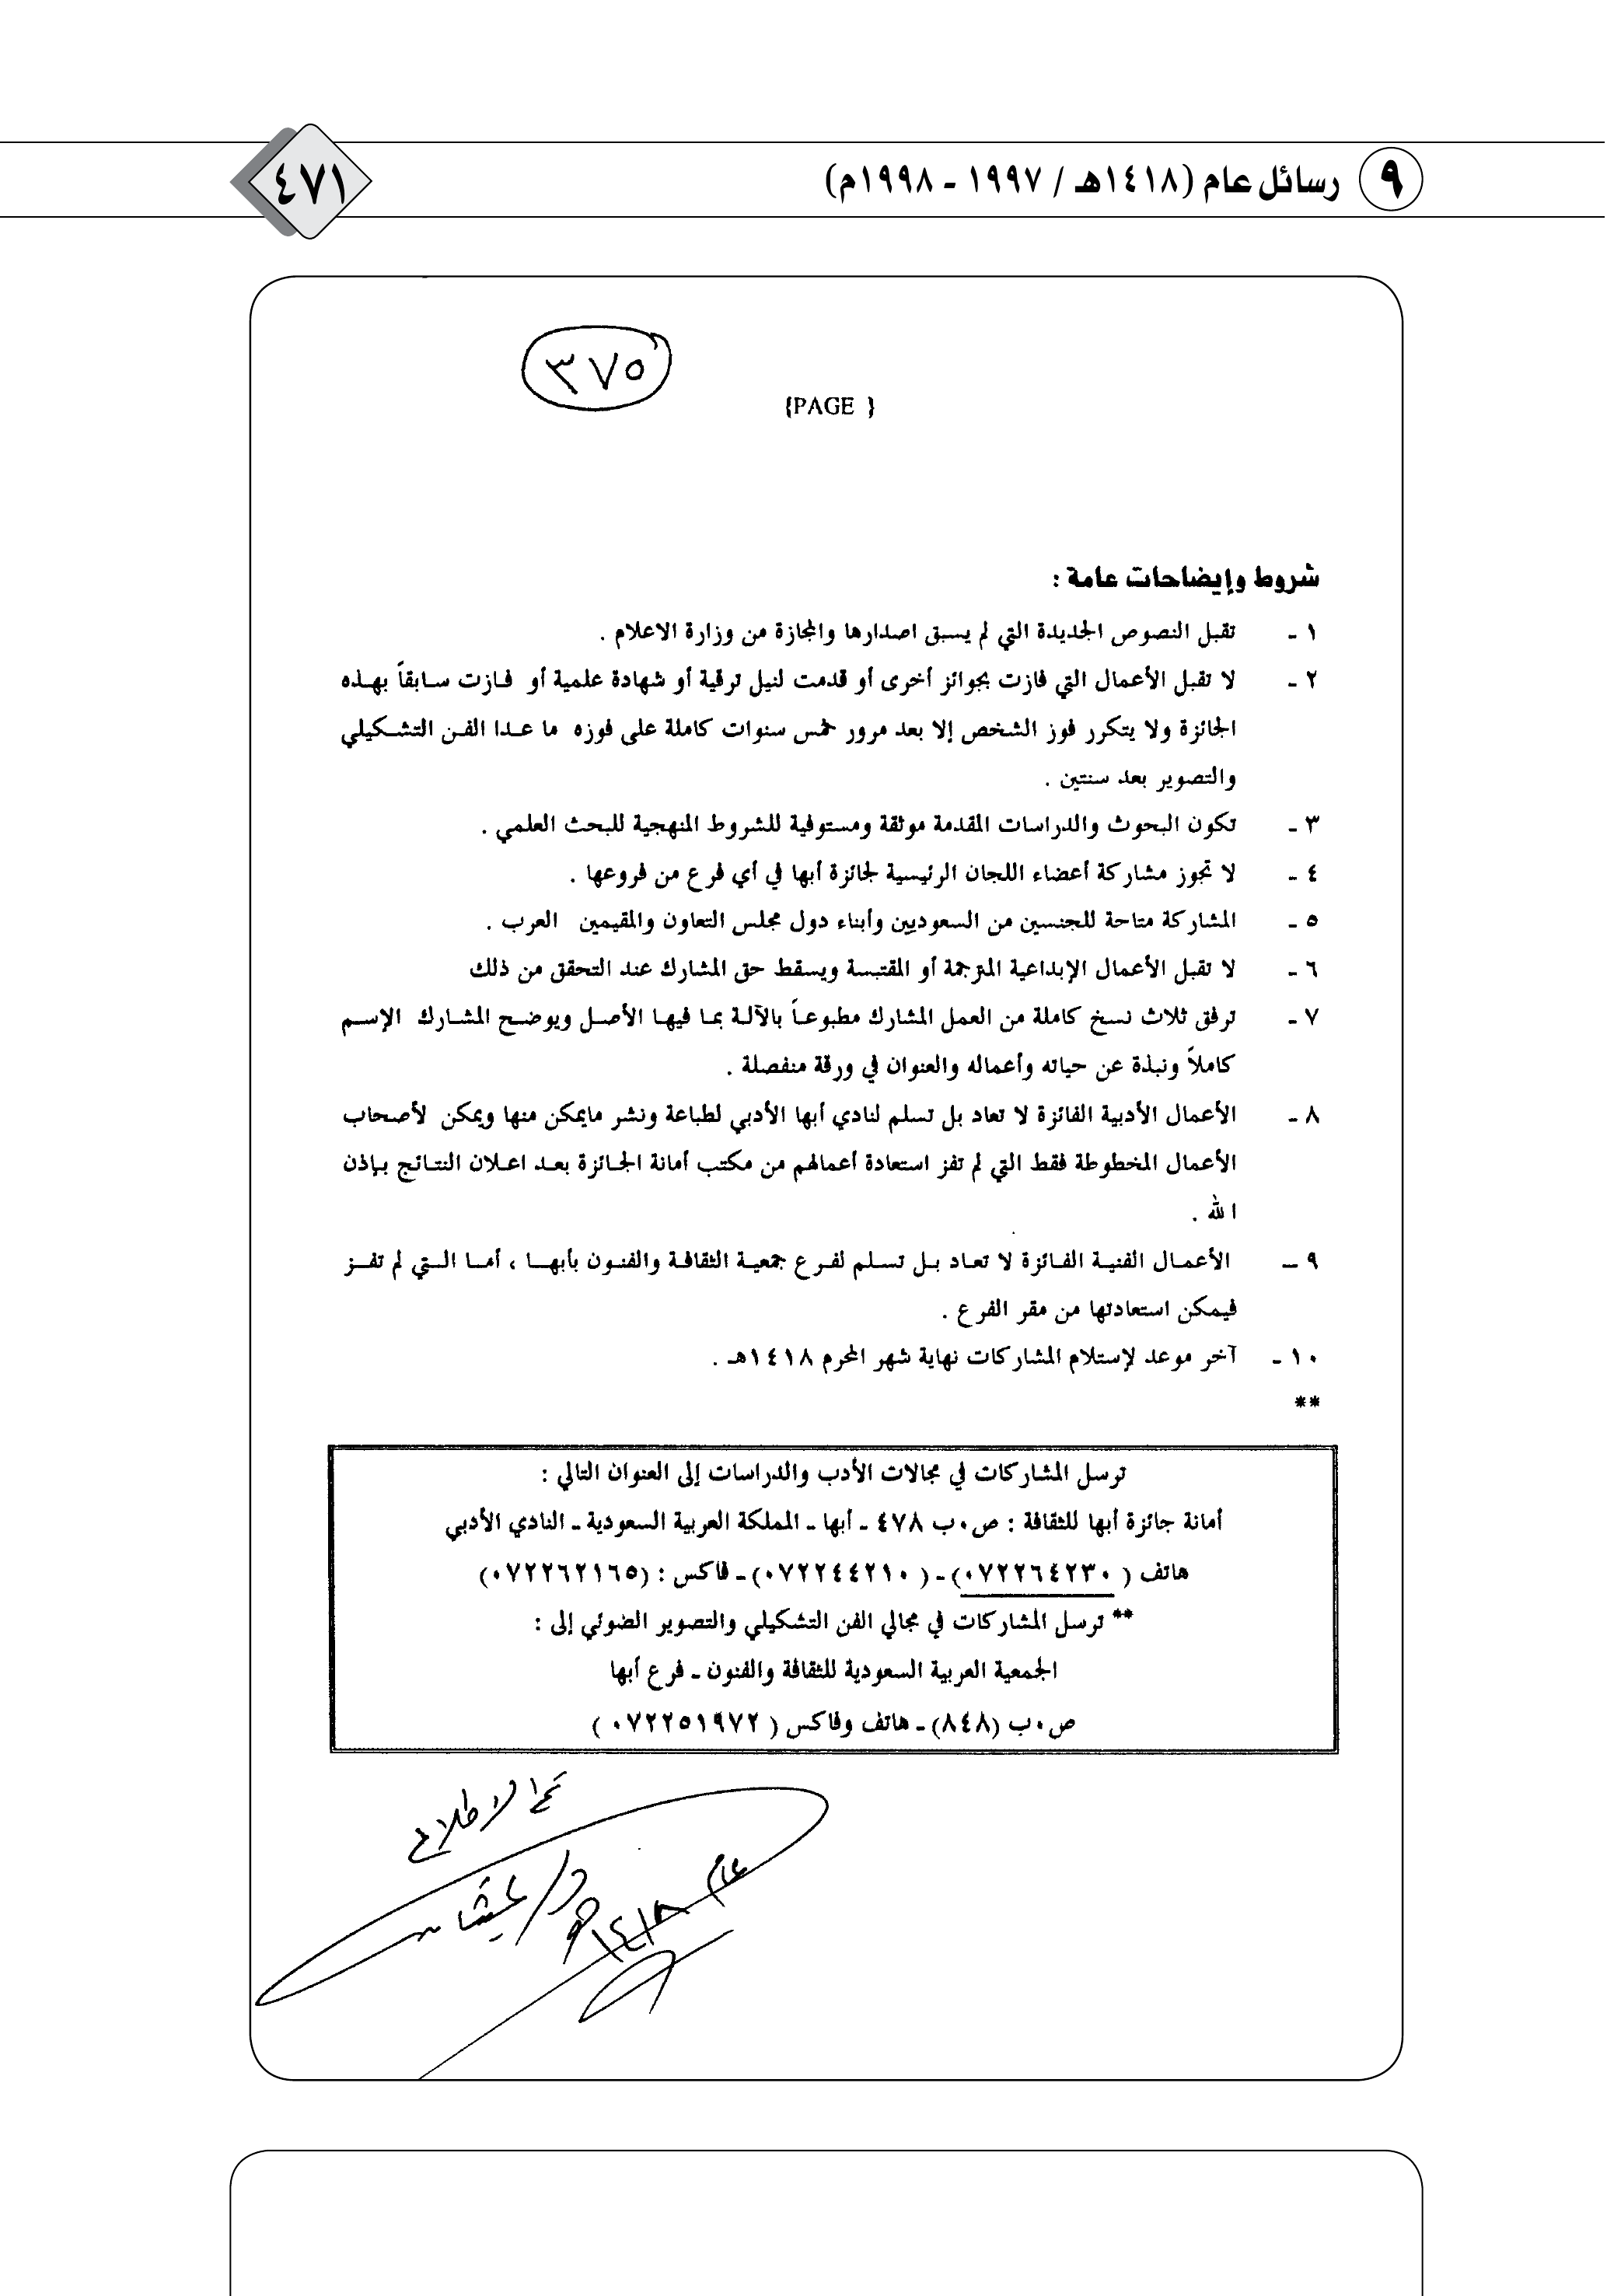 ٩ رسائل عام (١٤١٨هـ / ١٩٩٧ - ١٩٩٨م)
٤٧١
٣٧٥
{PAGE }
شروط وإيضاحات عامة :
١ - تقبل النصوص الجديدة التي لم يسبق اصدارها والمجازة من وزارة الاعلام .
٢ - لا تقبل الأعمال التي فازت بجوائز أخرى أو قدمت لنيل ترقية أو شهادة علمية أو فـازت سـابقاً بهـذه
الجائزة ولا يتكرر فوز الشخص إلا بعد مرور خمس سنوات كاملة على فوزه ما عـدا الفـن التشـكيلي
والتصوير بعد سنتين .
٣ - تكون البحوث والدراسات المقدمة موثقة ومستوفية للشروط المنهجية للبحث العلمي .
٤ - لا تجوز مشاركة أعضاء اللجان الرئيسية لجائزة أبها في أي فرع من فروعها .
٥ - المشاركة متاحة للجنسين من السعوديين وأبناء دول مجلس التعاون والمقيمين العرب .
٦ - لا تقبل الأعمال الإبداعية المترجمة أو المقتبسة ويسقط حق المشارك عند التحقق من ذلك
٧ - ترفق ثلاث نسخ كاملة من العمل المشارك مطبوعـاً بالآلـة بمـا فيهـا الأصـل ويوضـح المشـارك الإسـم
كاملاً ونبذة عن حياته وأعماله والعنوان في ورقة منفصلة .
٨ - الأعمال الأدبية الفائزة لا تعاد بل تسلم لنادي أبها الأدبي لطباعة ونشر مايمكن منها ويمكن لأصحاب
الأعمال المخطوطة فقط التي لم تفز استعادة أعمالهم من مكتب أمانة الجـائزة بعـد اعـلان النتـائج بـإذن
الله .
٩ – الأعمـال الفنيـة الفـائزة لا تعـاد بـل تسـلم لفـرع جمعيـة الثقافـة والفنـون بأبهـــا ، أمــا الــتي لم تفــز
فيمكن استعادتها من مقر الفرع .
١٠ - آخر موعد لإستلام المشاركات نهاية شهر المحرم ١٤١٨هـ .
**
ترسل المشاركات في مجالات الأدب والدراسات إلى العنوان التالي :
أمانة جائزة أبها للثقافة : ص٠ب ٤٧٨ ـ أبها ـ المملكة العربية السعودية ـ النادي الأدبي
هاتف ( ٠٧٢٢٦٤٢٣٠) ـ ( ٠٧٢٢٤٤٢١٠) ـ فاكس : (٠٧٢٢٦٢١٦٥)
** ترسل المشاركات في مجالي الفن التشكيلي والتصوير الضوئي إلى :
الجمعية العربية السعودية للثقافة والفنون ـ فرع أبها
ص٠ب (٨٤٨) ـ هاتف وفاكس ( ٠٧٢٢٥١٩٧٢ )
تم الاطلاع
عام ١٤١٨هـ